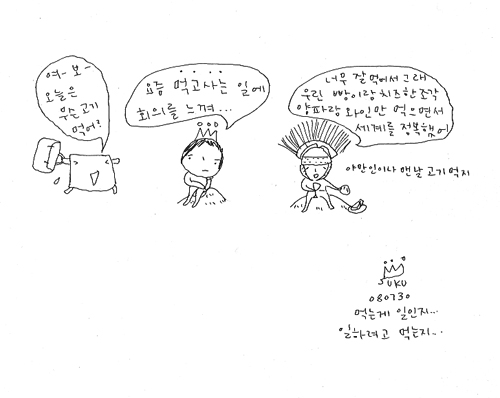 여-보-
오늘은
무슨고기
먹어?
요즘 먹고사는 일에
회의를 느껴...
너무 잘먹어서 그래
우린 빵이랑 치즈한조각
양파랑 와인만 먹으면서
세계를 정복했어
야만인이나 맨날 고기 먹지
SUKU
080730
먹는게 일인지...
일하려고 먹는지...